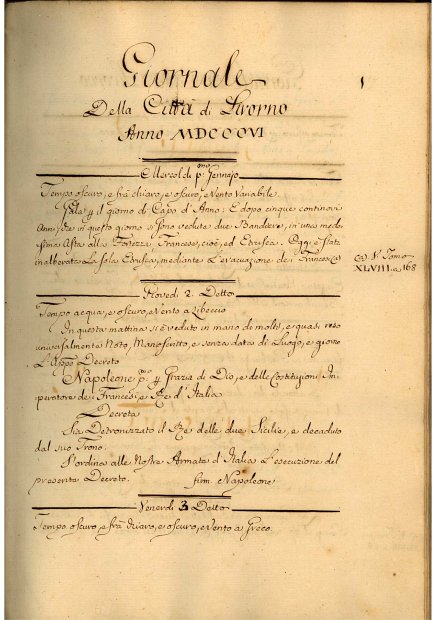 Giornale
Della Città di Livorno
Anno MDCCCVI
1
Mercoldì p.mo Gennajo
Tempo oscuro, e frà chiaro, e oscuro, e Vento Variabile.
Gala p il giorno di Capo d'Anno: E dopo cinque continovi
Anni, che in questo giorno si sono vedute due Bandiere, in una mede-
sima Asta alla Fortezza, Francese, cioè, ed Etrusca. Oggi è stata
inalberata La sola Etrusca, mediante L'evacuazione de i Francesi (a)
(a) V. Tomo
XLVIII. a 168
Giovedì 2. Detto
Tempo acqua, e oscuro, e Vento a Libeccio
In questa mattina si è veduto in mano de molti, e quasi reso
universalmente Noto, Manoscritto, e senza data di Luogo, e giorno
L'App.o Decreto
Napoleone p.mo p Grazia di Dio, e delle Costituzioni Im-
peratore de i Francesi, e Re d'Italia
Decreta
Sia Detronizzato il Re delle due Sicilie, e decaduto
dal suo Trono.
S'ordina alle Nostre Armata d'Italia L'esecuzione del
presente Decreto. firm. Napoleone
Venerdì 3 Detto
Tempo oscuro, e frà chiaro, e oscuro, e Vento a Greco.